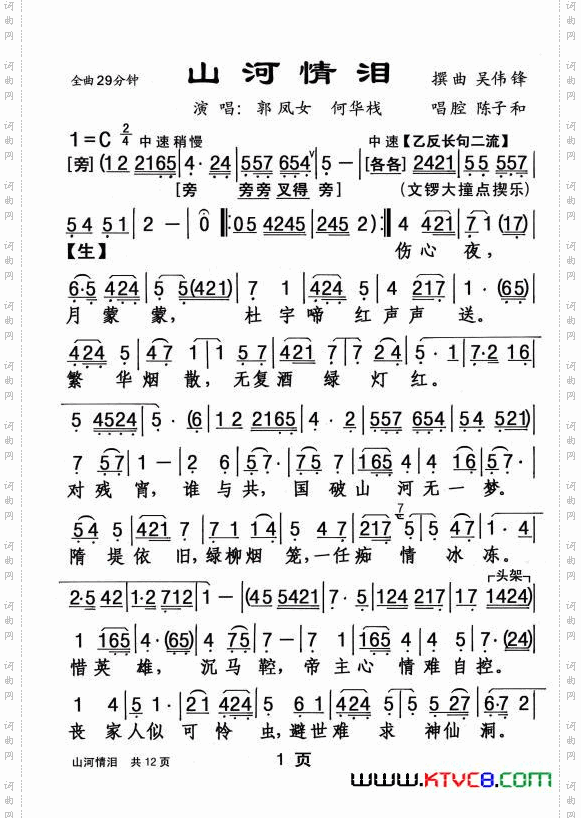 山河情泪
全曲29分钟
撰曲 吴伟锋
演唱：郭凤女 何华栈 唱腔 陈子和
1=C 2/4 中速稍慢 中速【乙反长句二流】
[旁] (1 2 2165 | 4· 24 | 557 654 | 5 - | [各各] 2421 | 55 557 |
[旁 旁旁 叉得 旁] (文锣大撞点揳乐)
54 51 | 2 - | 0 ‖: 05 4245 | 245 2 ) :‖ 4 421 | 7 1 (17) |
【生】 伤心夜，
6·5 424 | 5 5(421) | 7 1 | 424 5 | 4 217 | 1·(65) |
月蒙蒙， 杜宇啼红声声送。
424 5 | 47 1 | 1 57 | 421 7 | 7 24 | 5·1 | 7·2 16 |
繁华烟散，无复酒绿灯红。
5 4524 | 5·(6 | 1 2 2165 | 4· 2 | 557 654 | 54 521) |
7 57 | 1 - | 2 6 | 57· | 75 7 | 165 4 | 4 16 | 57· |
对残宵，谁与共，国破山河无一梦。
54 5 | 421 7 | 71 14 | 5 - | 45 4 | 217 5 | 5 47 | 1· 4 |
隋堤依旧，绿柳烟笼，一任痴情冰冻。
头架
2·5 42 | 1·2 712 | 1 - | (45 5421 | 7· 5 | 124 217 | 17 1424) |
1 165 | 4·(65) | 4 75 | 7 - | 1 7 | 1 424 | 5 457 | 5·(24) |
惜英雄，沉马鞚，帝主心情难自控。
1 4 | 5 1· | 21 424 | 5 61 | 5 424 | 5 51 | 27 | 6·7 2 |
丧家人似可怜虫，避世难求神仙洞。
山河情泪 共12页
1 页
www.KTVC8.com
词曲网